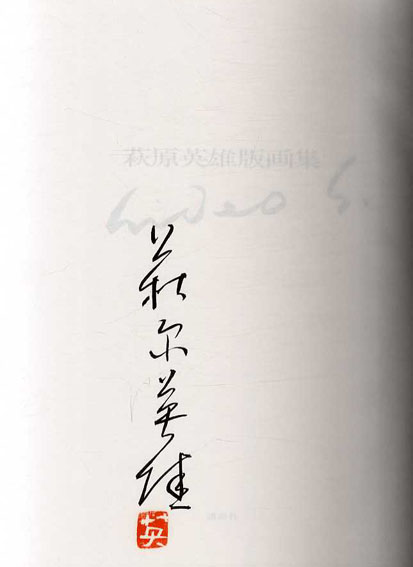 萩原英雄版画集
hideo
萩原英雄
英